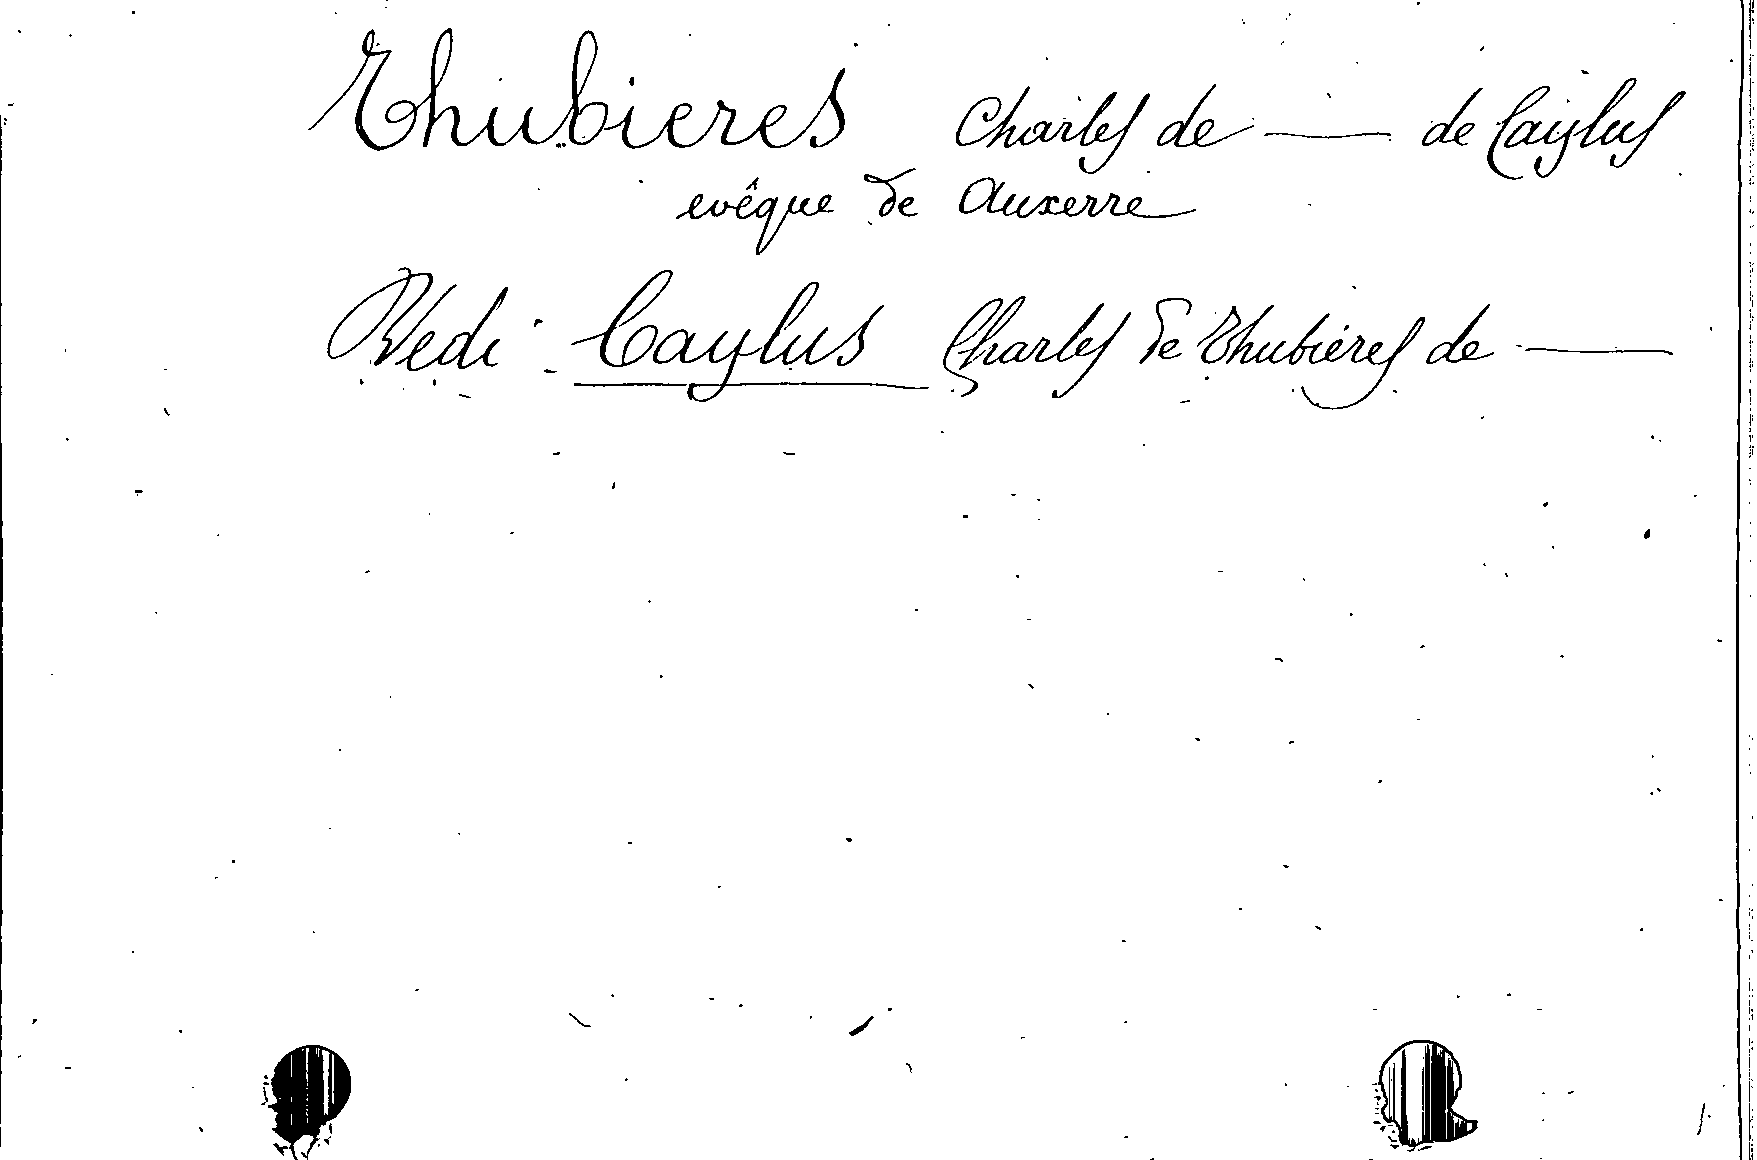 Thubieres Charles de — de Caylus
evêque de Auxerre
Vedi: Caylus Charles de Thubières de —